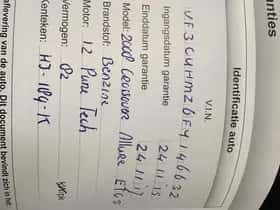 anties
Identificatie auto
V.I.N.
VF3CUHMZ6FY146632
Ingangsdatum garantie 24.11.15
Einddatum garantie 24.11.17
Model: 2008 Crossover Allure ETG5
Brandstof: Benzine
Motor: 1.2 Pure Tech
Vermogen: 82
Kenteken: HJ-
aflevering van de auto. Dit document bevindt zich in het